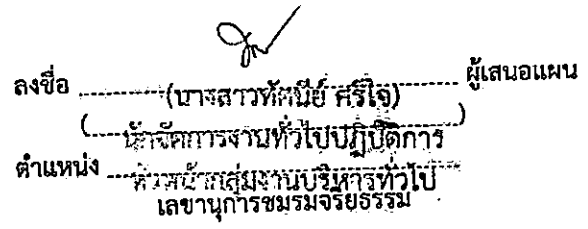 ลงชื่อ ผู้เสนอแผน
(นางสาวทัศนีย์ ศรีใจ)
นักจัดการงานทั่วไปปฏิบัติการ
ตำแหน่ง หัวหน้ากลุ่มงานบริหารทั่วไป
เลขานุการชมรมจริยธรรม